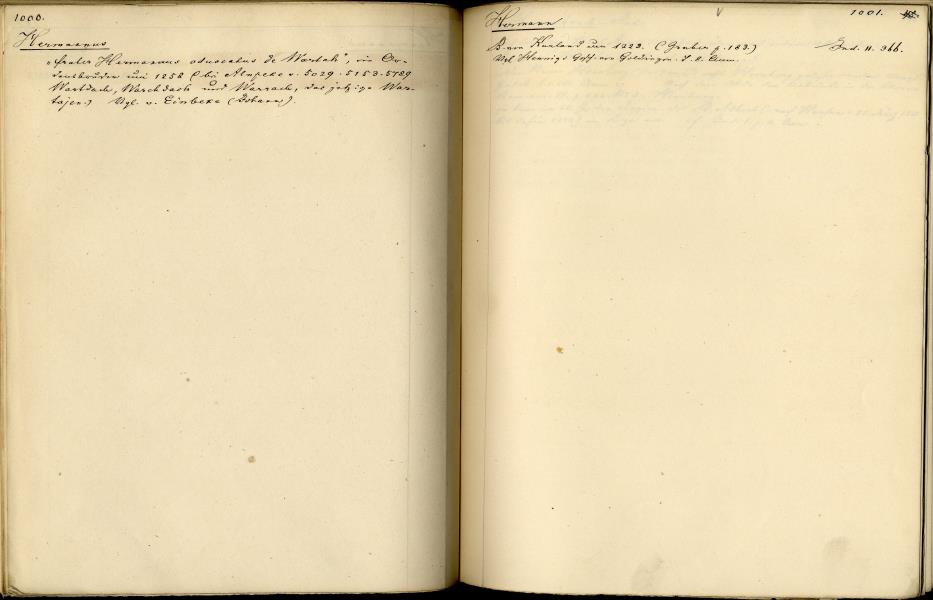 1000.
Hermannus
„frater Hermannus advocatus de Wartah", ein Or-
densbruder um 1258 (bei Alnpeke v. 5029. 5153. 5789
Wartdach, Warchdach und Warrach, das jetzige War-
tajen.) Vgl. v. Einbeke (Johann).
1001.
Hermann
B. von Kurland um 1223. (Gruber p. 183.) Ind. II. 366.
Vgl. Hennigs Gesch. von Goldingen.